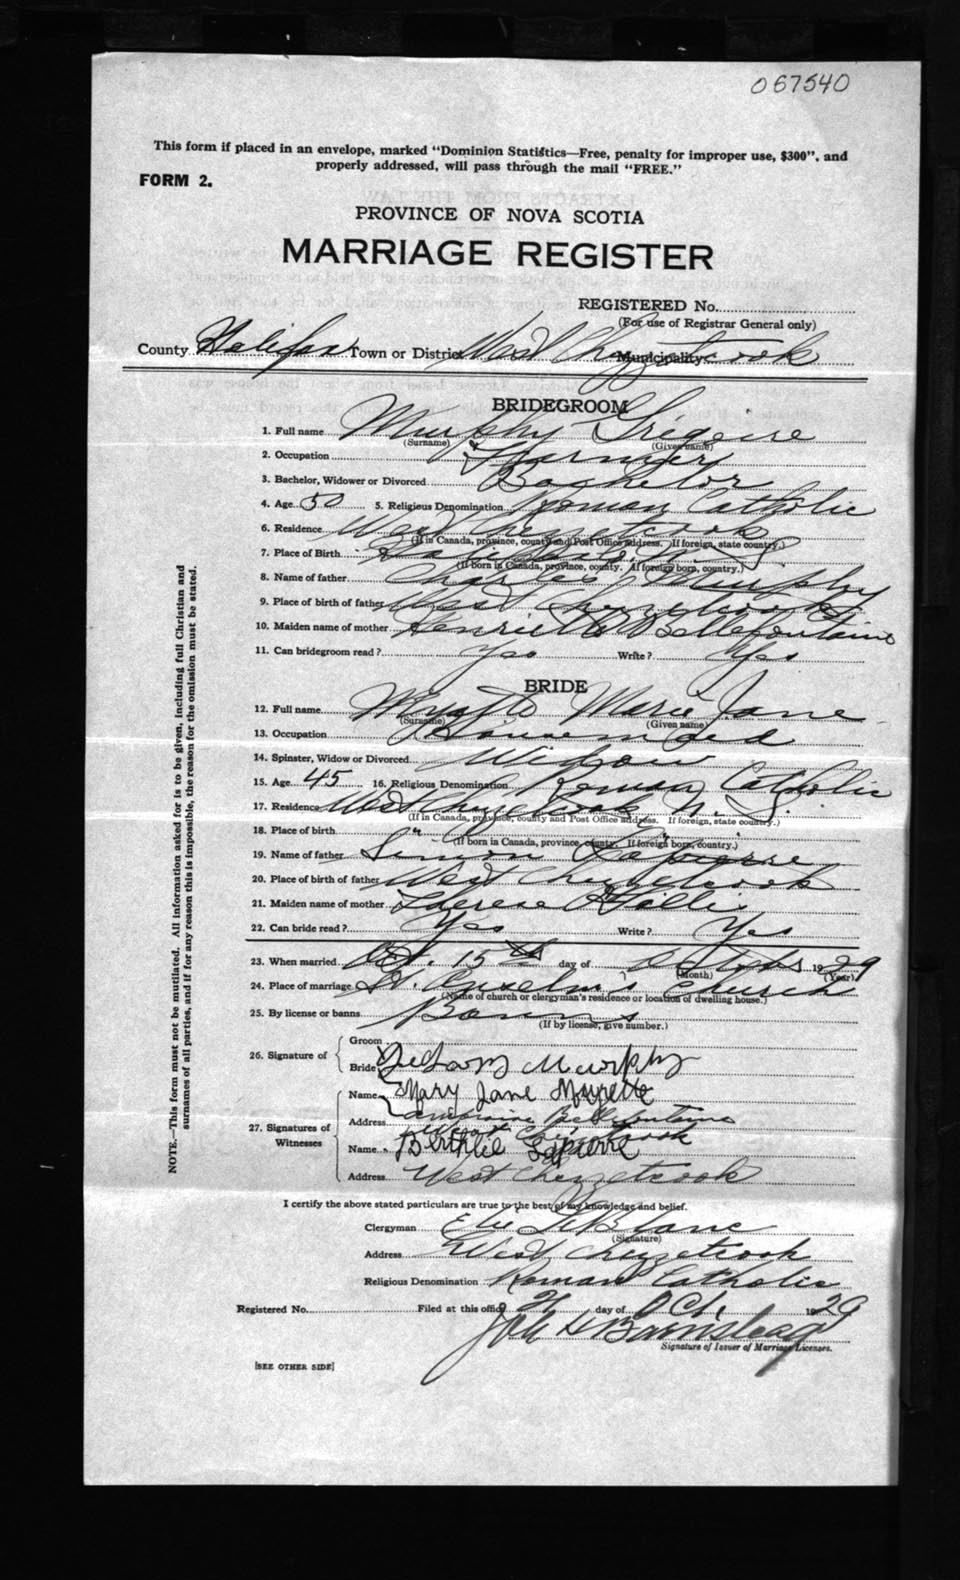 067540
This form if placed in an envelope, marked "Dominion Statistics—Free, penalty for improper use, $300", and
properly addressed, will pass through the mail "FREE."
FORM 2.
PROVINCE OF NOVA SCOTIA
MARRIAGE REGISTER
REGISTERED No.
(For use of Registrar General only)
County Halifax Town or District West Chezzetcook Municipality
BRIDEGROOM
1. Full name Murphy Gregoire
(Surname) (Given name)
2. Occupation Farmer
3. Bachelor, Widower or Divorced Bachelor
4. Age 50 5. Religious Denomination Roman Catholic
6. Residence West Chezzetcook
(If in Canada, province, county and Post Office address. If foreign, state country.)
7. Place of Birth
(If born in Canada, province, county. If foreign born, country.)
8. Name of father Charles Murphy
9. Place of birth of father West Chezzetcook
10. Maiden name of mother Henriette Bellefontaine
11. Can bridegroom read? Yes Write? Yes
BRIDE
12. Full name Marie Jane
(Surname) (Given name)
13. Occupation Housemaid
14. Spinster, Widow or Divorced Widow
15. Age 45 16. Religious Denomination Roman Catholic
17. Residence West Chezzetcook N. S.
(If in Canada, province, county and Post Office address. If foreign, state country.)
18. Place of birth " "
(If born in Canada, province, county. If foreign born, country.)
19. Name of father Simon Lapierre
20. Place of birth of father West Chezzetcook
21. Maiden name of mother Therese
22. Can bride read? Yes Write? Yes
23. When married Oct. 15th day of October 1929
(Month) (Year)
24. Place of marriage St. Anselm's Church
(Name of church or clergyman's residence or location of dwelling house.)
25. By license or banns Banns
(If by license, give number.)
26. Signature of { Groom
Bride Murphy
Name Mary Jane
27. Signatures of Witnesses { Address Bellefontaine
West Chezzetcook
Name Lapierre
Address West Chezzetcook
I certify the above stated particulars are true to the best of my knowledge and belief.
Clergyman Elie LeBlanc
(Signature)
Address West Chezzetcook
Religious Denomination Roman Catholic
Registered No. Filed at this office day of Oct. 1929
Signature of Issuer of Marriage Licenses.
[SEE OTHER SIDE]
NOTE.—This form must not be mutilated. All information asked for is to be given, including full Christian and
surnames of all parties, and if for any reason this is impossible, the reason for the omission must be stated.